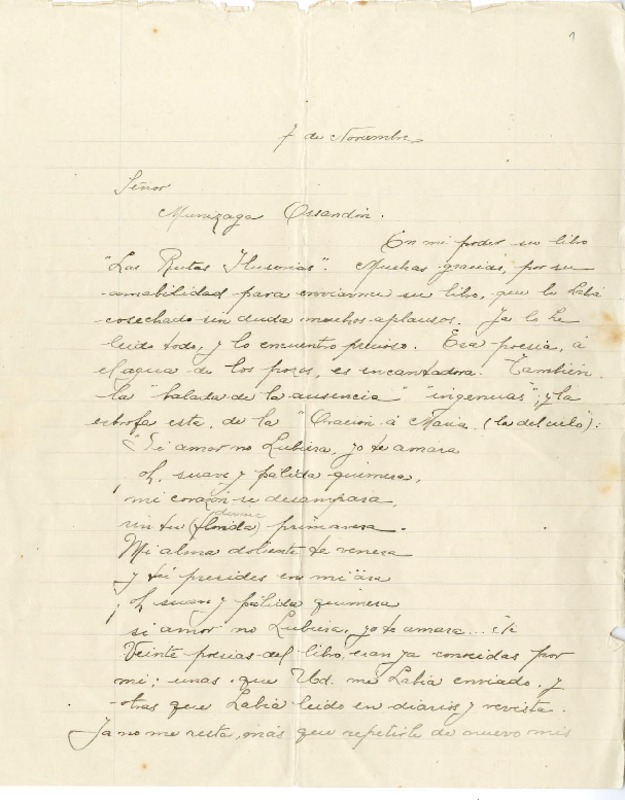 1
7 de Noviembre
Señor
Munizaga Ossandón.
En mi poder su libro
"Las Rutas Ilusorias". Muchas gracias, por su
amabilidad para enviarme su libro, que le habrá
cosechado sin duda muchos aplausos. Ya lo he
leido todo, y lo encuentro precioso. Esa poesía, á
el agua de los pozos, es encantadora. También
la "balada de la ausencia" "ingenuas", y la
estrofa esta, de la "Oración á María (la del cielo):
"Si amor no hubiera, yo te amara
¡oh, suave y pálida quimera,
mi corazón se desampara,
sin tu (florida) primavera.
Mi alma doliente te venera
y tú presides en mi ara
¡oh suave y pálida quimera
si amor no hubiera, yo te amara...
Veinte poesías del libro, eran ya conocidas por
mi; unas que Ud. me había enviado, y
otras que había leido en diarios y revista.
Ya no me resta, más que repetirle de nuevo mis